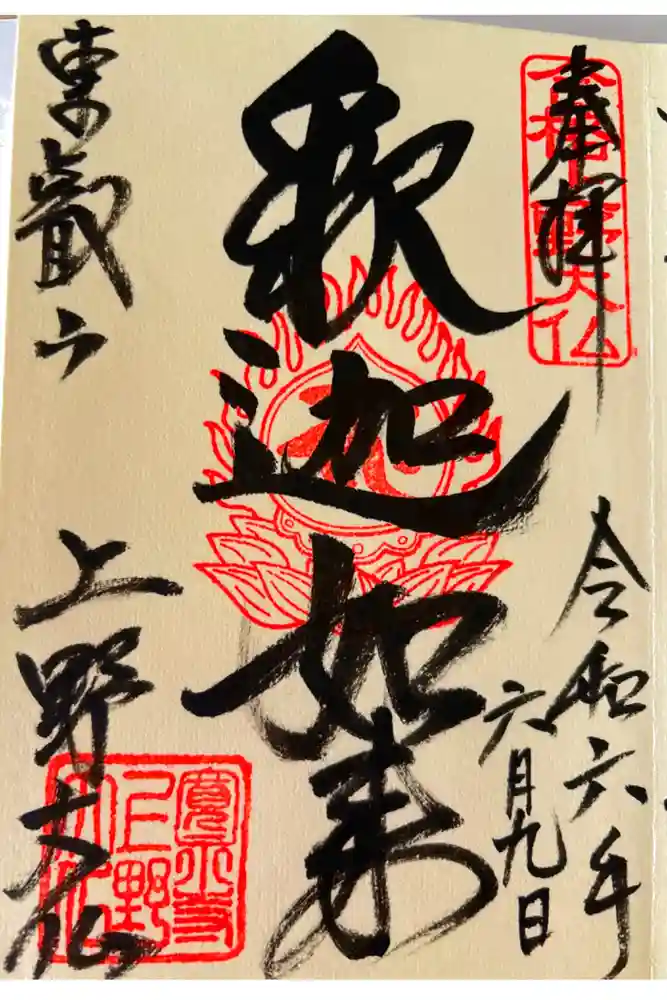 奉拝
令和六年
六月九日
釈迦如来
東叡山
上野大仏
合格 上野大仏
寛永寺
上野
大仏